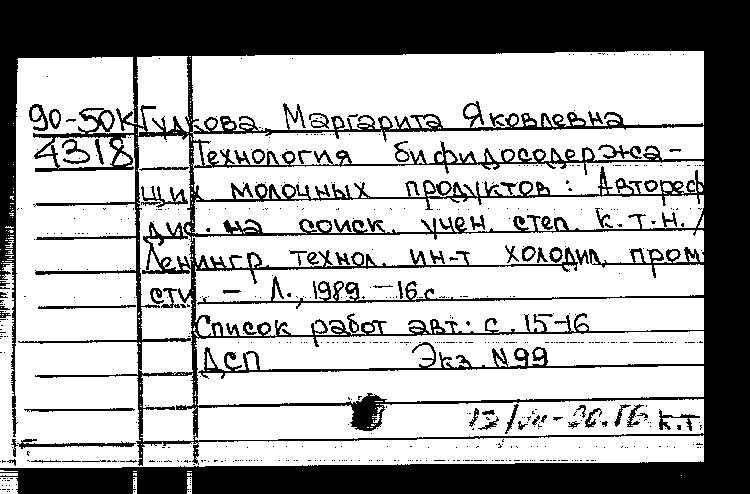 90-50К Гудкова, Маргарита Яковлевна
4318 Технология бифидосодержа-
щих молочных продуктов: Автореф
дис. на соиск. учен. степ. к.т.н. /
Ленингр. технол. ин-т холодил. пром
сти. – Л., 1989. – 16 с.
Список работ авт.: с. 15-16
ДСП Экз. N 99
к.т